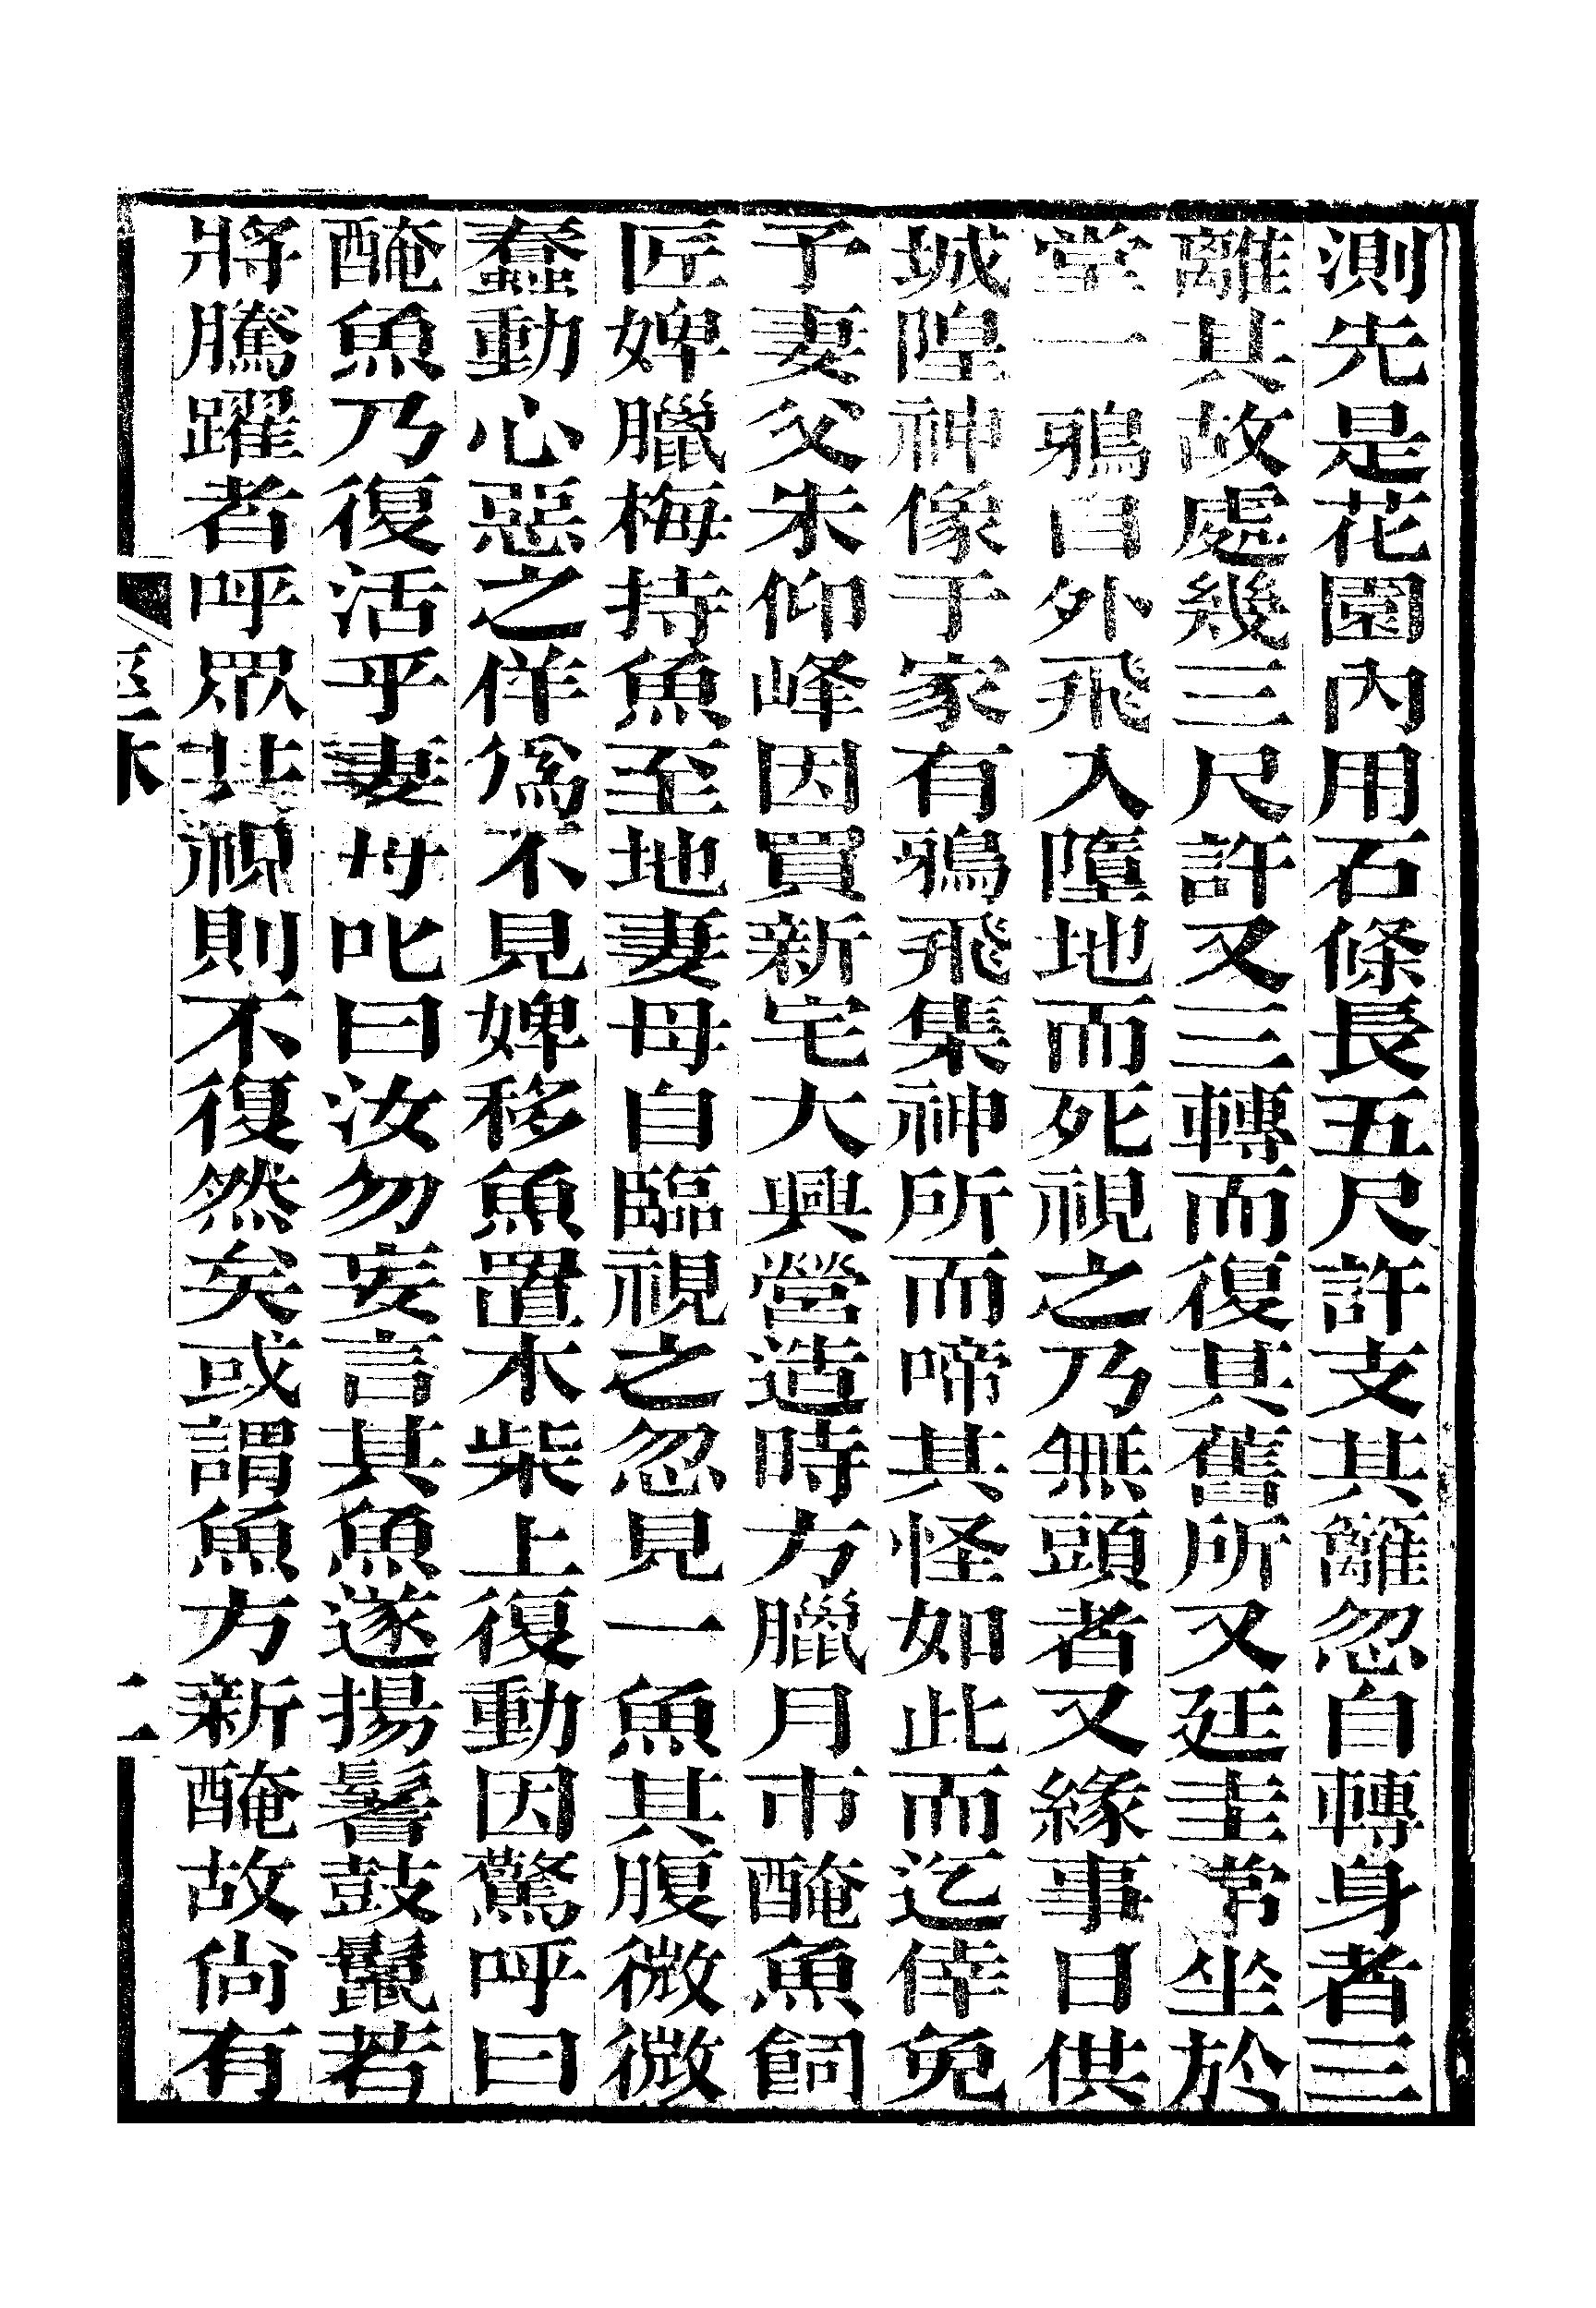 測先是花園內用石條長五尺許支其籬忽自轉身者三
離其故處幾三尺許又三轉而復其舊所又廷圭常坐於
堂一鴉自外飛入墮地而死視之乃無頭者又緣事日供
城隍神像于家有鴉飛集神所而啼其怪如此而迄倖免
予妻父朱仰峰因買新宅大興營造時方臘月市醃魚飼
匠婢臘梅持魚至地妻母自臨視之忽見一魚其腹微微
蠢動心惡之佯爲不見婢移魚置木柴上復動因驚呼曰
醃魚乃復活乎妻母叱曰汝勿妄言其魚遂揚鬐鼓鬛若
將騰躍者呼眾共視則不復然矣或謂魚方新醃故尙有